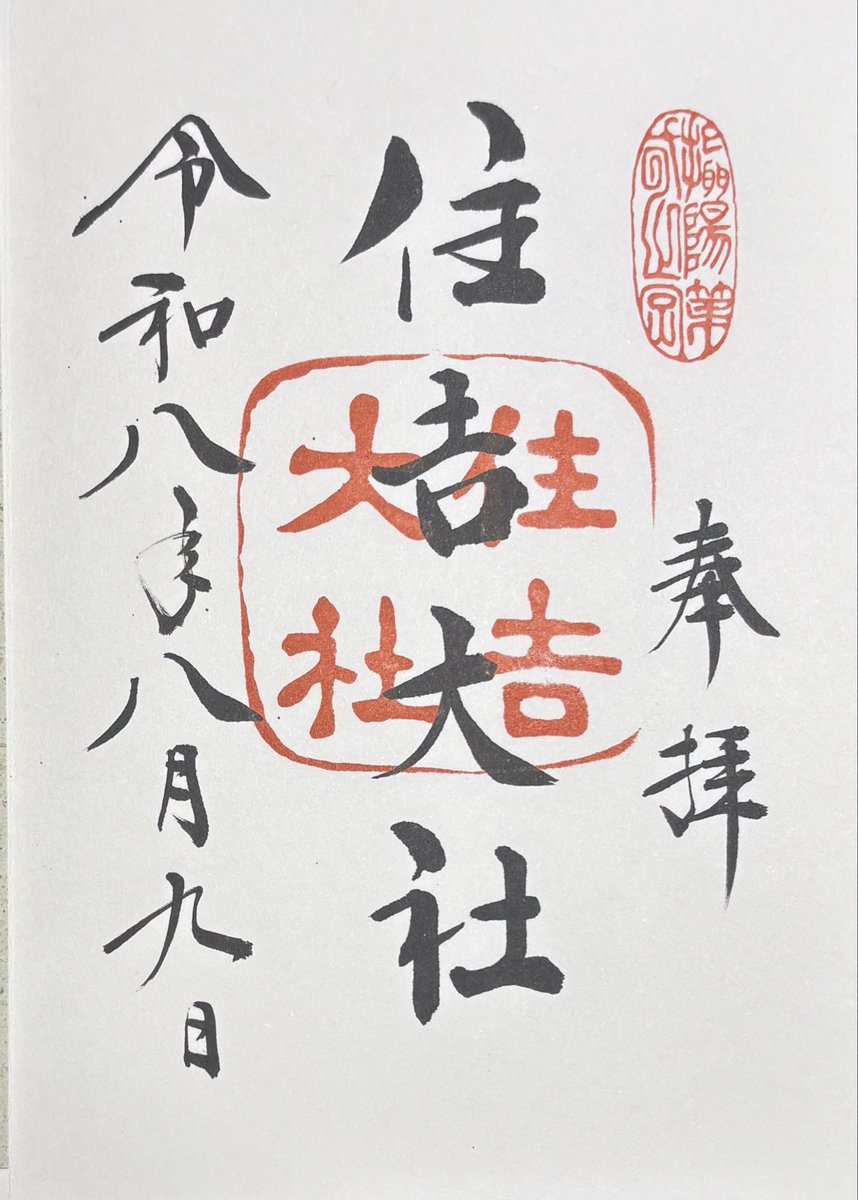 奉拝
住吉大社
住吉
大社
令和八年八月九日